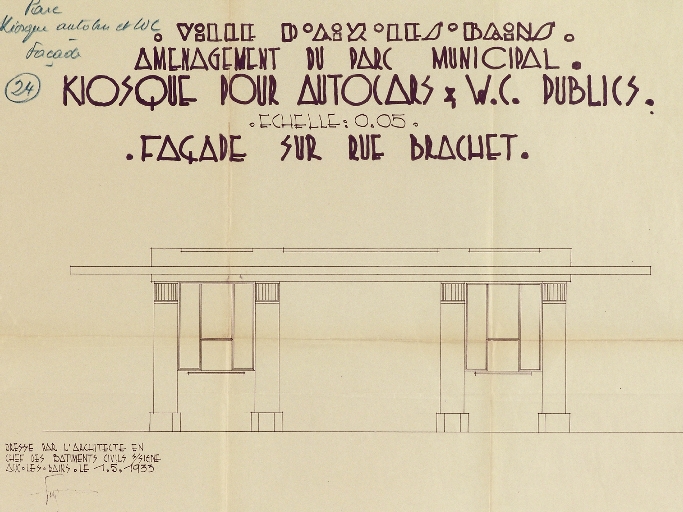 Parc
Kiosque autobus et WC
Façade
24
VILLE D'AIX-LES-BAINS.
AMENAGEMENT DU PARC MUNICIPAL.
KIOSQUE POUR AUTOCARS & W.C. PUBLICS.
.ECHELLE: 0.05.
.FAÇADE SUR RUE BRACHET.
DRESSE PAR L'ARCHITECTE EN
CHEF DES BATIMENTS CIVILS SSIGNE
AIX-LES-BAINS. LE 1.5.1933